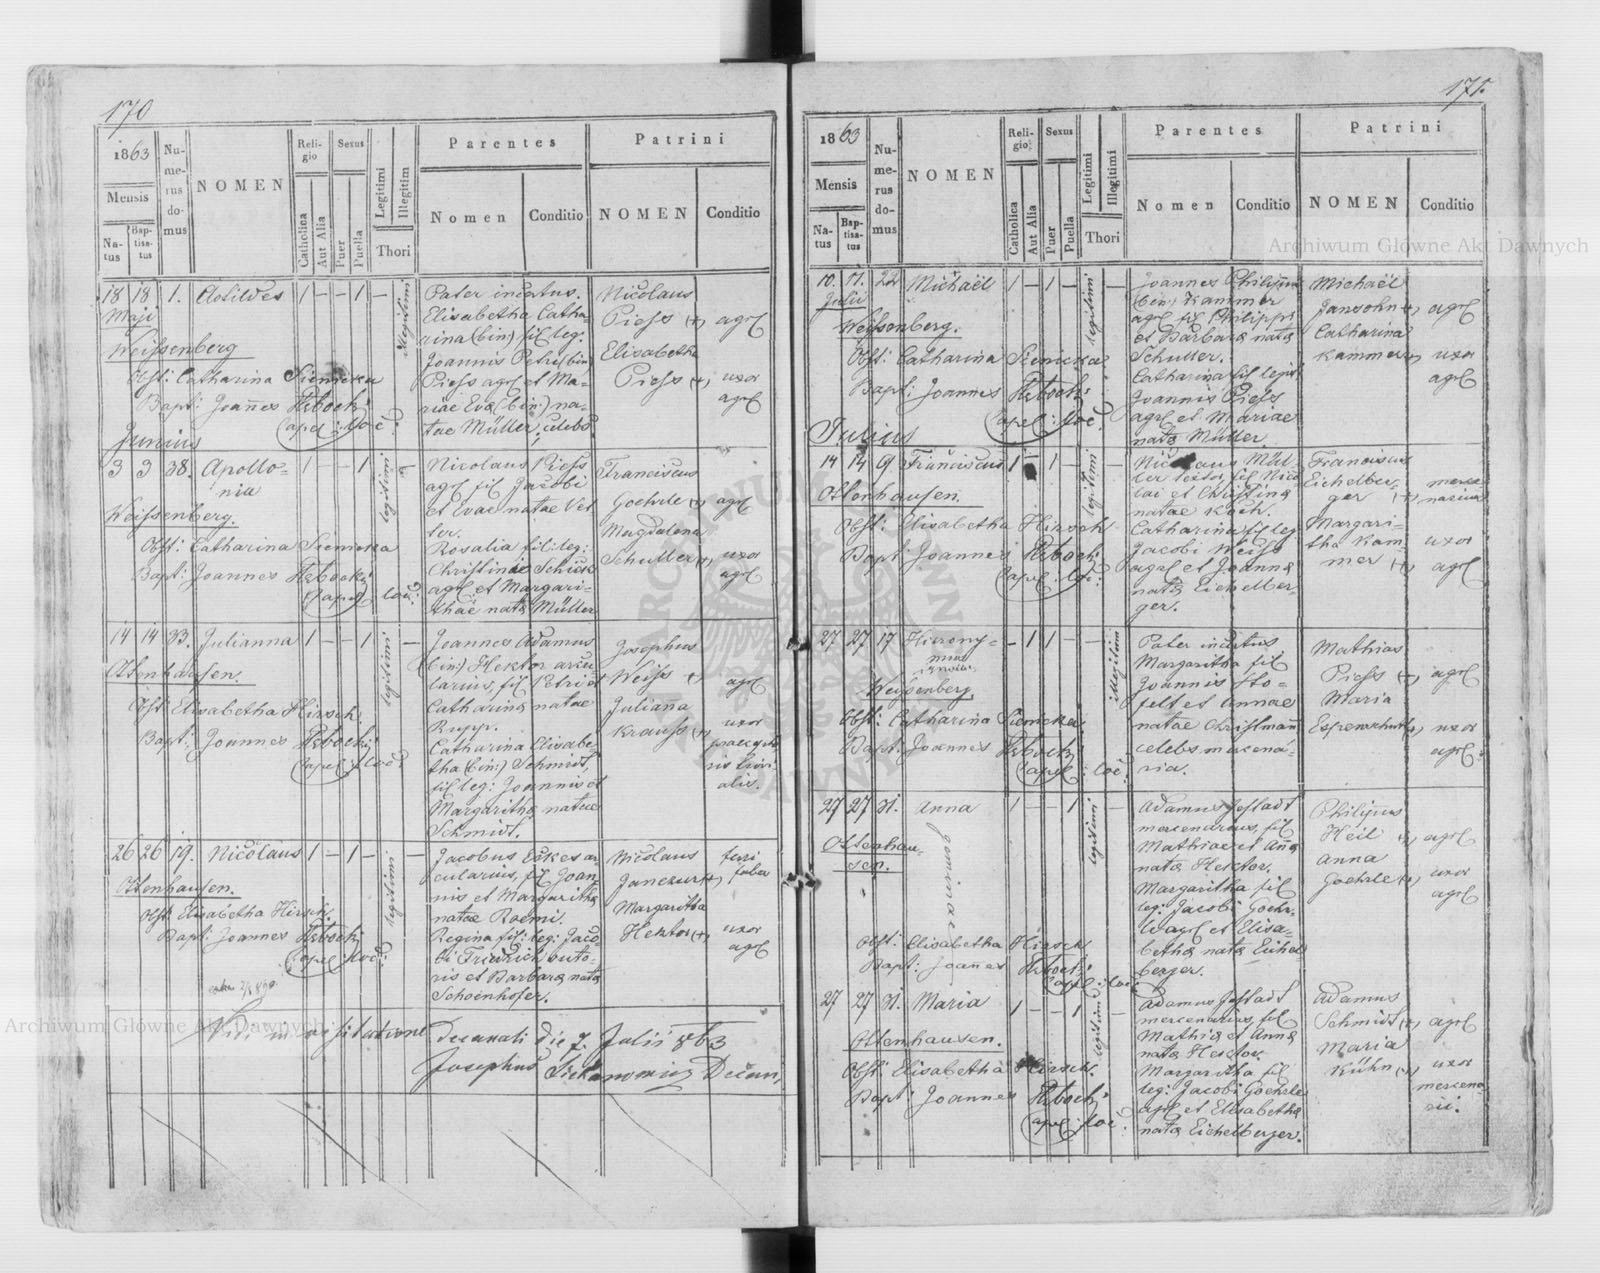 170
1863
Mensis
Natus
Baptisatus
Numerus domus
NOMEN
Religio
Catholica
Aut Alia
Sexus
Puer
Puella
Legitimi
Illegitim
Thori
Parentes
Nomen
Conditio
Patrini
NOMEN
Conditio
18 18 1. Clotildes 1 – – 1 –
Maji
Weissenberg
Obst: Catharina Siemcka
Bapt: Joannes
Illegitimi
Pater incertus.
Elisabetha Catha-
rina (bin) fil leg:
Joannis Petri (bin)
Piess agrl et Ma-
riae Eva (bin:) na-
tae Müller, celebs.
Nicolaus
Piess (+) agrl
Elisabetha
Piess (+) uxor
agrl
Junius
3 3 38. Apollo- 1 – – 1
nia
Weissenberg.
Obst: Catharina Siemcka
Bapt: Joannes
legitimi
Nicolaus Piess
agrl fil Jacobi
et Evae natae Vet
ter.
Rosalia fil: leg:
Christinae Schick
agrl et Margari-
thae nata Müller
Franciscus
Goehrle + agrl
Magdalena
Schuller + uxor
agrl
14 14 33. Julianna 1 – – 1 –
Ottenhausen.
Obst: Elisabetha Hirsch.
Bapt: Joannes
legitimi
Joannes Adamus
(bin:) Hektor arcu
larius, fil Petri et
Catharina natae
Rupp.
Catharina Elisabe-
tha (bin:) Schmidt,
fil leg: Joannis et
Margaritha natae
Schmidt.
Josephus
Weiss + agrl
Juliana
Krauss (+) uxor
26 26 19. Nicolaus 1 – 1 – –
Ottenhausen.
Obst: Elisabetha Hirsch.
Bapt: Joannes
legitimi
Jacobus Eckes ar
cularius, fil Joan
nis et Margaritha
natae Roemi.
Regina fil: leg: Jaco-
bi Friedrich suto-
ris et Barbara nata
Schoenhofer.
Nicolaus ferri
Janczur + faber
Margaritha
Hektor (+) uxor
agrl
Vidi in visitatione Decanali die 7. Julii 863
Josephus Decan,
171.
1863
Mensis
Natus
Baptisatus
Numerus domus
NOMEN
Religio
Catholica
Aut Alia
Sexus
Puer
Puella
Legitimi
Illegitimi
Thori
Parentes
Nomen
Conditio
Patrini
NOMEN
Conditio
10. 11. 22 Michaël 1 – 1 – –
Julii
Weissenberg.
Obst: Catharina Siemcka
Bapt: Joannes
legitimi
Joannes Philippus
(bin:) Kammer
agrl fil Philippi
et Barbara nata
Schuller.
Catharina fil legit
Joannis Piess
agrl et Mariae
nata Müller
Michaël
Jansohn + agrl
Catharina
Kammer + uxor
agrl
Julius
14 14 9. Franciscus 1 – 1 – –
Ottenhausen.
Obst: Elisabetha Hirsch
Bapt: Joannes
legitimi
Nicolaus Mül-
ler textor, fil Nico
lai et Christina
natae Koch.
Catharina fil leg
Jacobi Weiss
agrl et Joanna
nata Eichelber-
ger.
Franciscus
Eichelber-
ger (+)
Margari-
tha Kam-
mer (+) uxor
agrl
27 27 17 Hierony- – 1 1 –
mus
Weissenberg
Obst: Catharina Siemcka
Bapt: Joannes
Illegitim
Pater incertus
Margaritha fil
Joannis Sto-
felt et Annae
natae Christmann
celebs mercena-
ria.
Mathias
Piess (+) agrl
Maria
(+) uxor
agrl:
27 27 21. Anna 1 – – 1 –
Ottenhau-
sen.
geminae
Obst: Elisabetha Hirsch
Bapt: Joannes
legitimi
Adamus Jostadt
mercenarius, fil
Mathiae et Anna
nata Hektor.
Margaritha fil
leg: Jacobi Goehr-
le agrl et Elisa-
betha nata Eichel
berger.
Philippus
Heil + agrl
Anna
Goehrle + uxor
agrl
27 27 21. Maria 1 – – 1 –
Ottenhausen.
Obst: Elisabetha Hirsch.
Bapt: Joannes
legitimi
Adamus Jostadt
mercenarius, fil
Mathia et Anna
nata Hektor
Margaritha fil
leg: Jacobi Goehrle
agrl et Elisabetha
nata Eichelberger.
Adamus
Schmidt (+) agrl
Maria
Kühn (+) uxor
mercena
rii.
Archiwum Główne Akt Dawnych
Archiwum Główne Akt Dawnych